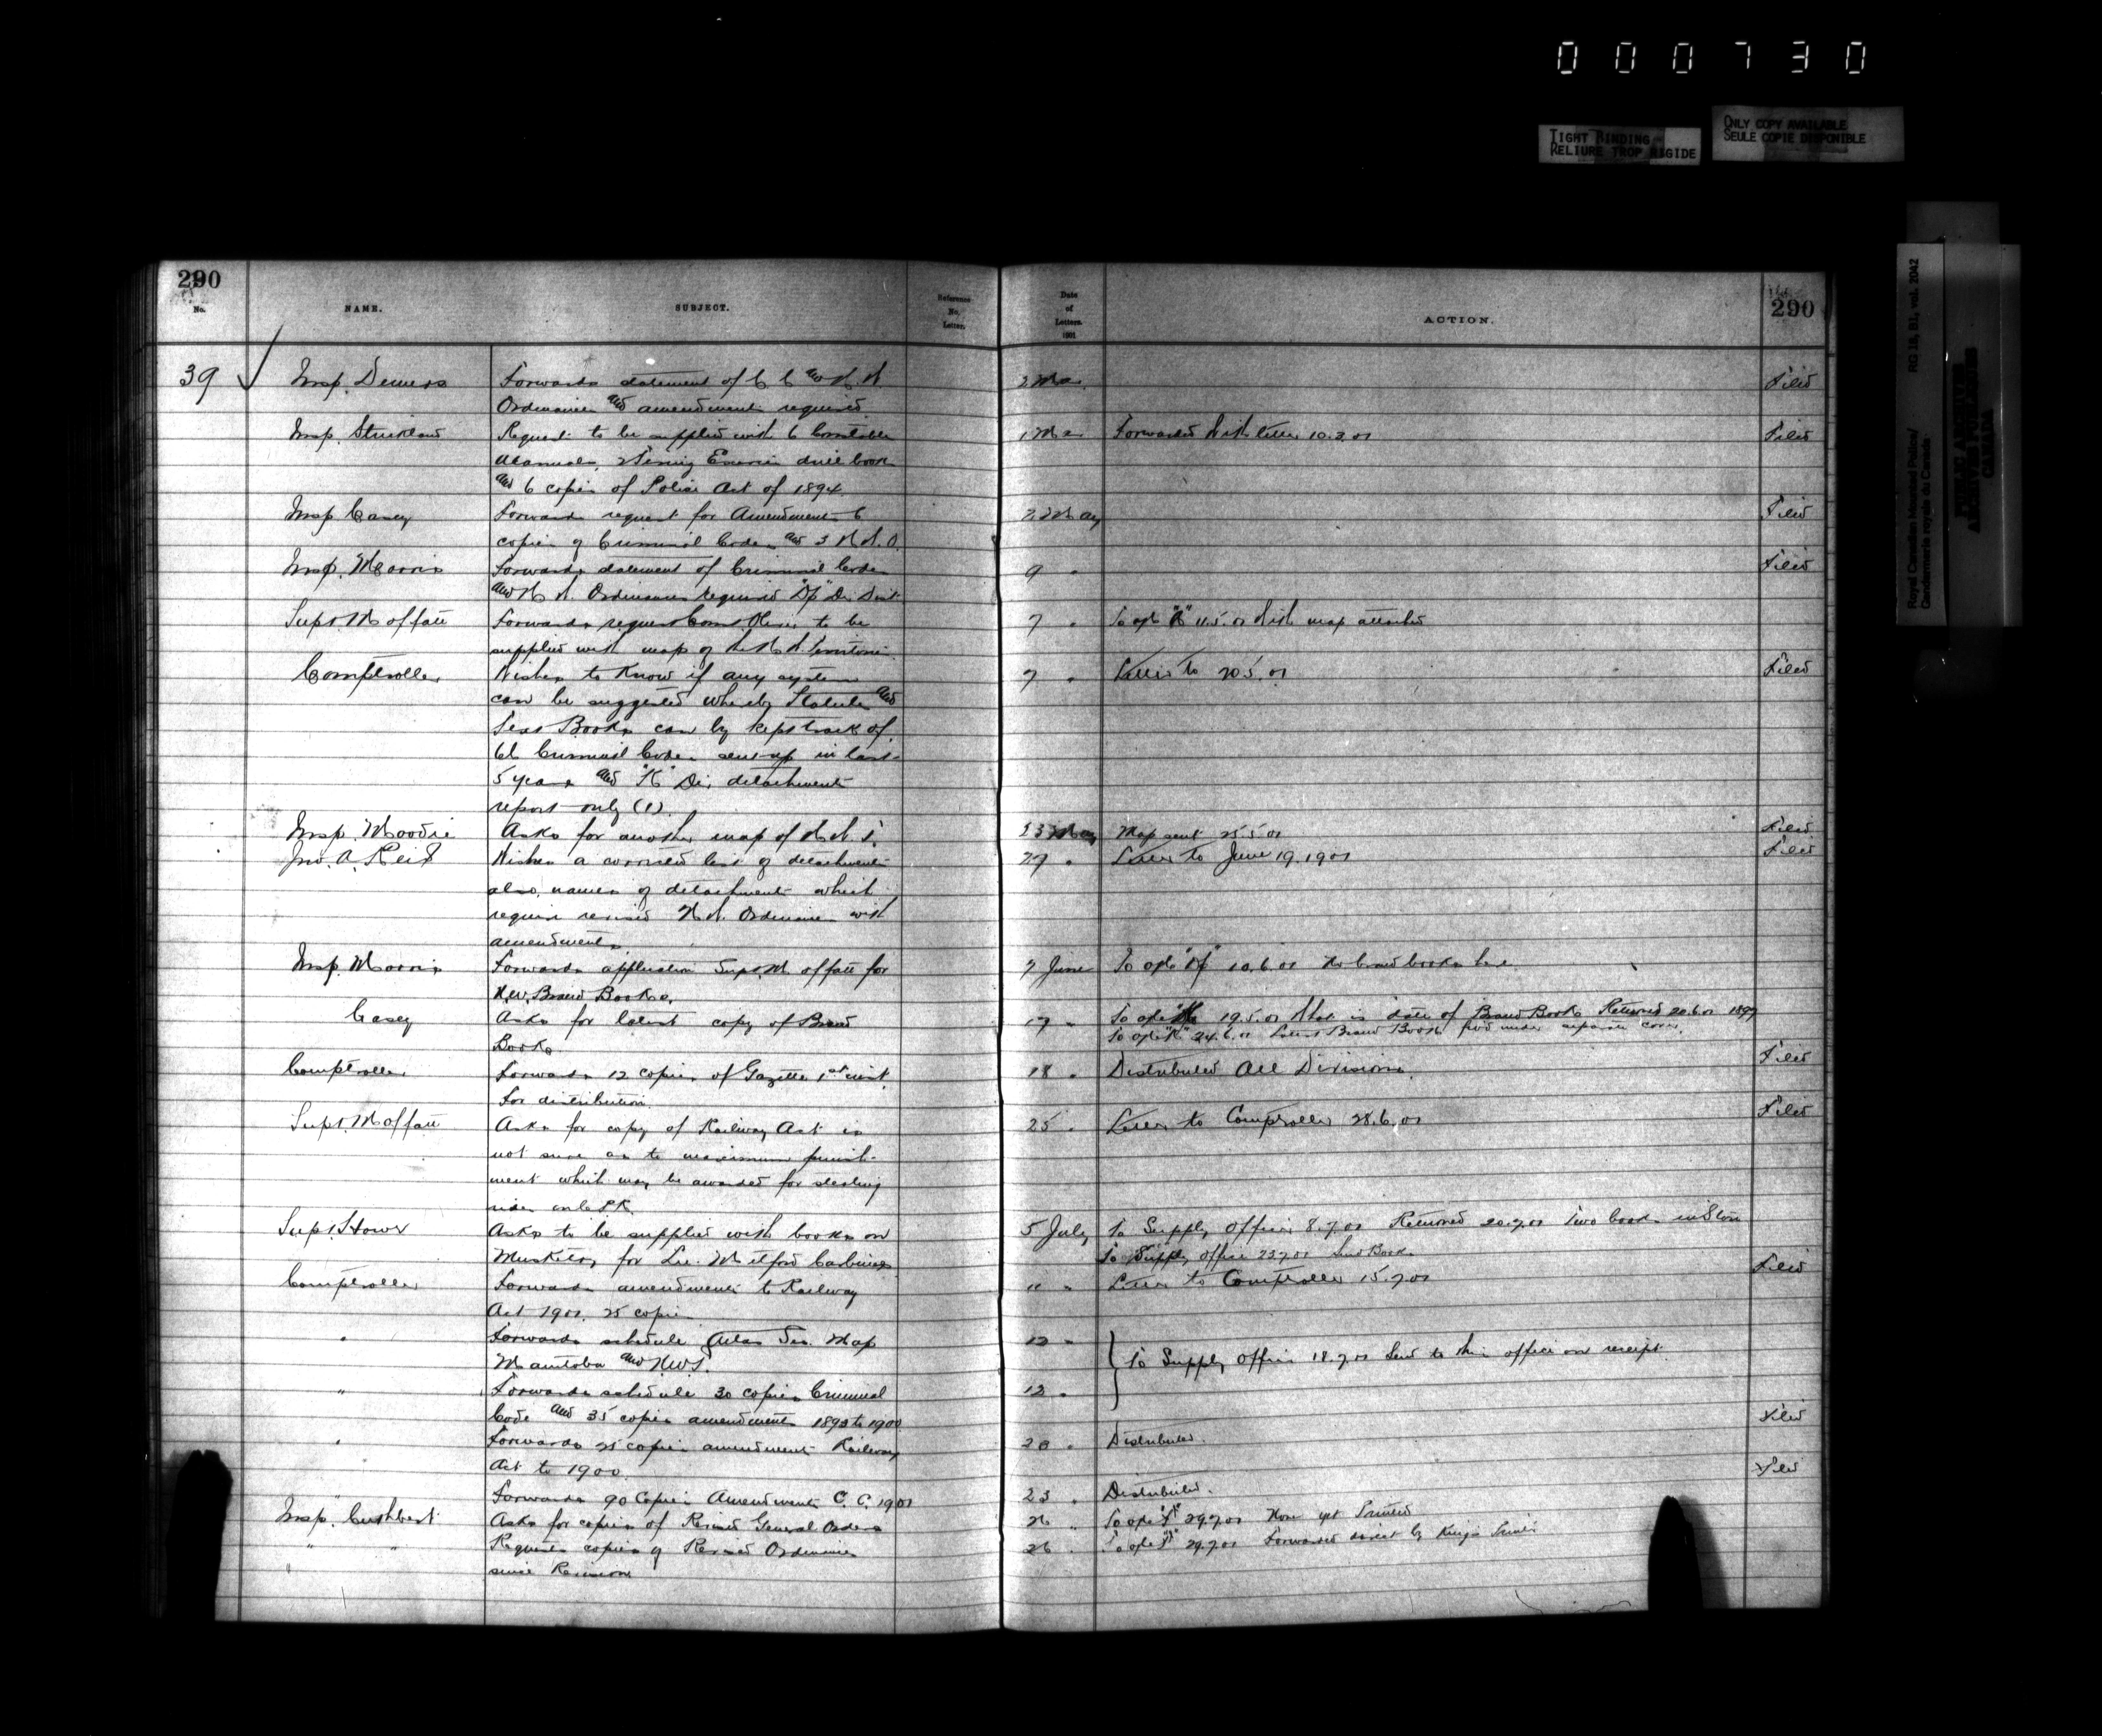 000730
TIGHT BINDING
RELIURE TROP RIGIDE
ONLY COPY AVAILABLE
SEULE COPIE DISPONIBLE
Royal Canadian Mounted Police/
Gendarmerie royale du Canada
RG 18, B1, vol. 2042
PUBLIC ARCHIVES
ARCHIVES PUBLIQUES
CANADA
290
No.
NAME.
SUBJECT.
Reference
No.
Letter.
Date
of
Letters.
1901
ACTION.
290
39 Insp. Demers Forwards statement of C C and N. W. 2 Filed
Ordinances and amendments required.
Insp. Strickland Request to be supplied with 6 Constables 1 Forwarded with letter 10.3.01 Filed
Manuals, 2 Exercise drill book
and 6 copies of Police Act of 1894.
Insp Casey Forwards request for Amendments 6 May Filed
copies of Criminal Codes and 3 N.W.O.
Insp. Morris Forwards statement of Criminal Codes 9 " Filed
and N W. Ordinances required Division
Supt. Moffatt Forwards request to be 7 " 11.5.01 with map attached
supplied with map of the N W Territories
Comptroller Wishes to know if any system 7 " Letter to 20.5.01 Filed
can be suggested whereby Statutes and
Text Books can by kept track of.
Criminal Codes sent up in last
5 years and "K" Div. detachments
report only (1).
Insp. Moodie Asks for another map of N W T. 23 May Map sent 25.5.01 Filed
Jno. A. Reid Wishes a corrected list of detachments " Letter to June 19.1901 Filed
also, names of detachments which
require revised N.W. Ordinances with
amendments
Insp. Morris Forwards application Supt. Moffatt for 7 June 10.6.01 No brand books here
N.W. Brand Books.
Casey Asks for latest copy of Brand 17 " 19.5.01 What is date of Brand Book Returned 20.6.01 1897
Book 24.6.01 Latest Brand Book fwd under separate cover.
Comptroller Forwards 12 copies of Gazette 1st inst. 18 " Distributed All Divisions. Filed
for distribution.
Supt. Moffatt Asks for copy of Railway Act is 25 " Letter to Comptroller 28.6.01 Filed
not sure as to maximum punish-
ment which may be awarded for stealing
rides on C.P.R.
Supt. Howe Asks to be supplied with books on 5 July To Supply Officer 8.7.01 Returned 20.7.01 Two books in Store
Musketry for Lee. Metford Carbines To Supply office 23.7.01 Send Books
Comptroller Forwards amendments to Railway 11 " Letter to Comptroller 15.7.01 Filed
Act 1901. 25 copies
" Forwards schedule Atlas Sec. Map 12 "
Manitoba and NWT. To Supply Officer 18.7.01 Send to this office on receipt.
" Forwards schedule 30 copies Criminal 12 "
Code and 35 copies amendments 1893 to 1900 Filed
" Forwards 25 copies amendments Railway 20 " Distributed.
Act to 1900. Filed
" Forwards 90 Copies Amendments C. C. 1901 23 " Distributed.
Insp. Cuthbert Asks for copies of Revised General Orders 26 " 29.7.01 None yet Printed
" " Requests copies of Revised Ordinances 26 " 29.7.01 Forwarded direct by King's Printer
" since Revision